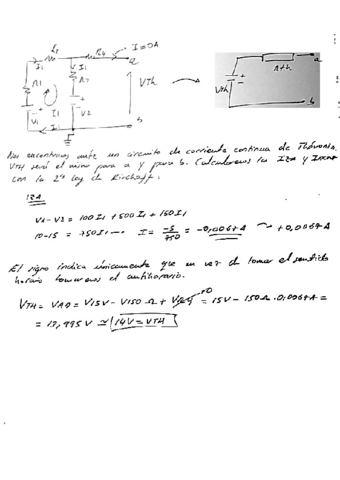 R2 R4 I=0A
I1 I1 a
R1 R3 VTh
I1
V1 V2
I1 b
Rth a
Vth
b
Nos encontramos ante un circuito de corriente continua de Thévenin.
VTH será el mismo para a y para b. Calcularemos la
con la 2ª ley de Kirchoff.
V1-V2 = 100I1 + 500I1 + 150I1
10-15 = 750I1 I = -5/750 = -0,0067A +0,0067A
El signo indica únicamente que en vez de tomar el sentido
horario tomaremos el antihorario.
VTH = VAB = V15V - V150Ω + = 15V - 150Ω·0,0067A =
= 13,995V ≃ 14V = VTH